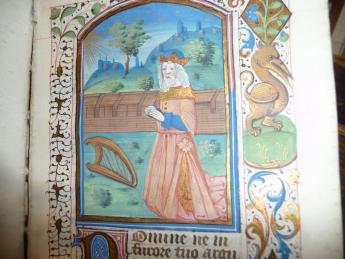 Domine ne in
furore tuo argu